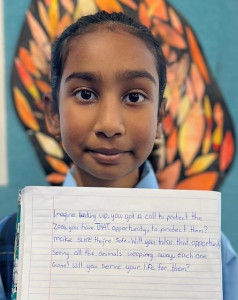 Imagine waking up, you got a call to protect the
Zoo, you have THAT opportunity, to protect them?
make sure they're safe. Will you take that opportunity
seeing all the animals weeping away, each one
Gone? Will you serve your life for them?